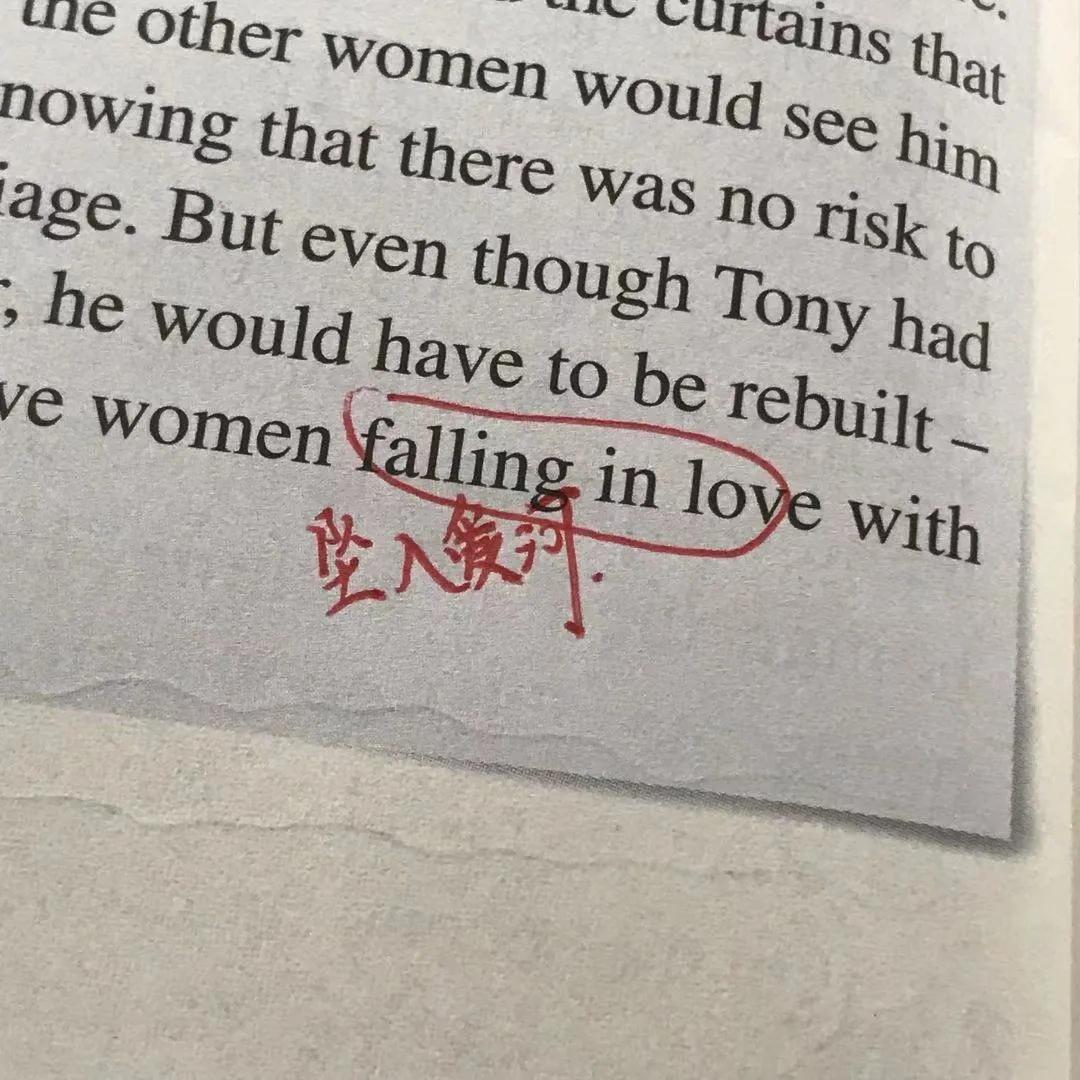 the curtains that
the other women would see him
nowing that there was no risk to
iage. But even though Tony had
; he would have to be rebuilt –
ve women falling in love with
坠入爱河.